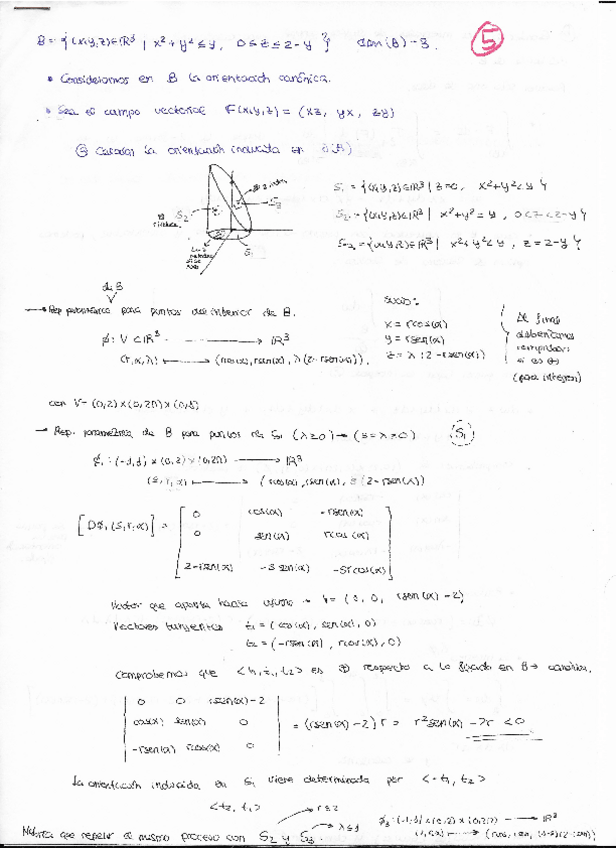 B = { (x,y,z) ∈ ℝ³ | x² + y² ≤ y, 0 ≤ z ≤ 2 - y } dim(B) = 3.
⑤
• Consideramos en B la orientación canónica.
• Sea el campo vectorial F(x,y,z) = (xz, yx, zy)
③ Calcular la orientación inducida en ∂(B)
S₂
S₃
S₁
S₁ = { (x,y,z) ∈ ℝ³ | z=0, x²+y² < y }
S₂ = { (x,y,z) ∈ ℝ³ | x²+y² = y, 0<z<2-y }
S₃ = { (x,y,z) ∈ ℝ³ | x²+y² < y, z = 2-y }
de B
→ Rep paramétrica para puntos del interior de B.
φ: V ⊂ ℝ³ → ℝ³
(r,α,λ) ↦ (rcos(α), rsen(α), λ(2-rsen(α))).
x = rcos(α)
y = rsen(α)
z = λ(2-rsen(α))
Al final
deberíamos
comprobar
si es ⊕
(para integrar)
con V = (0,2)×(0,2π)×(0,1)
→ Rep. paramétrica de B para puntos de S₁ (λ=0) → (s=λ=0) (S₁)
φ₁: (-1,1)×(0,2)×(0,2π) → ℝ³
(s,r,α) ↦ (rcos(α), rsen(α), s(2-rsen(α)))
[Dφ₁(s,r,α)] =
0 cos(α) -rsen(α)
0 sen(α) rcos(α)
2-rsen(α) -s sen(α) -srcos(α)
Vector que apunta hacia afuera → h = (0, 0, rsen(α)-2)
Vectores tangentes t₁ = (cos(α), sen(α), 0)
t₂ = (-rsen(α), rcos(α), 0)
Comprobemos que <h,t₁,t₂> es ⊕ respecto a lo fijado en B → canónica.
0 0 rsen(α)-2
cos(α) sen(α) 0
-rsen(α) rcos(α) 0
= (rsen(α)-2) r = r²sen(α) - 2r < 0
La orientación inducida en S₁ viene determinada por <-t₁, t₂>
<t₂, t₁>
que repetir el mismo proceso con S₂ y S₃.
→ λ=1